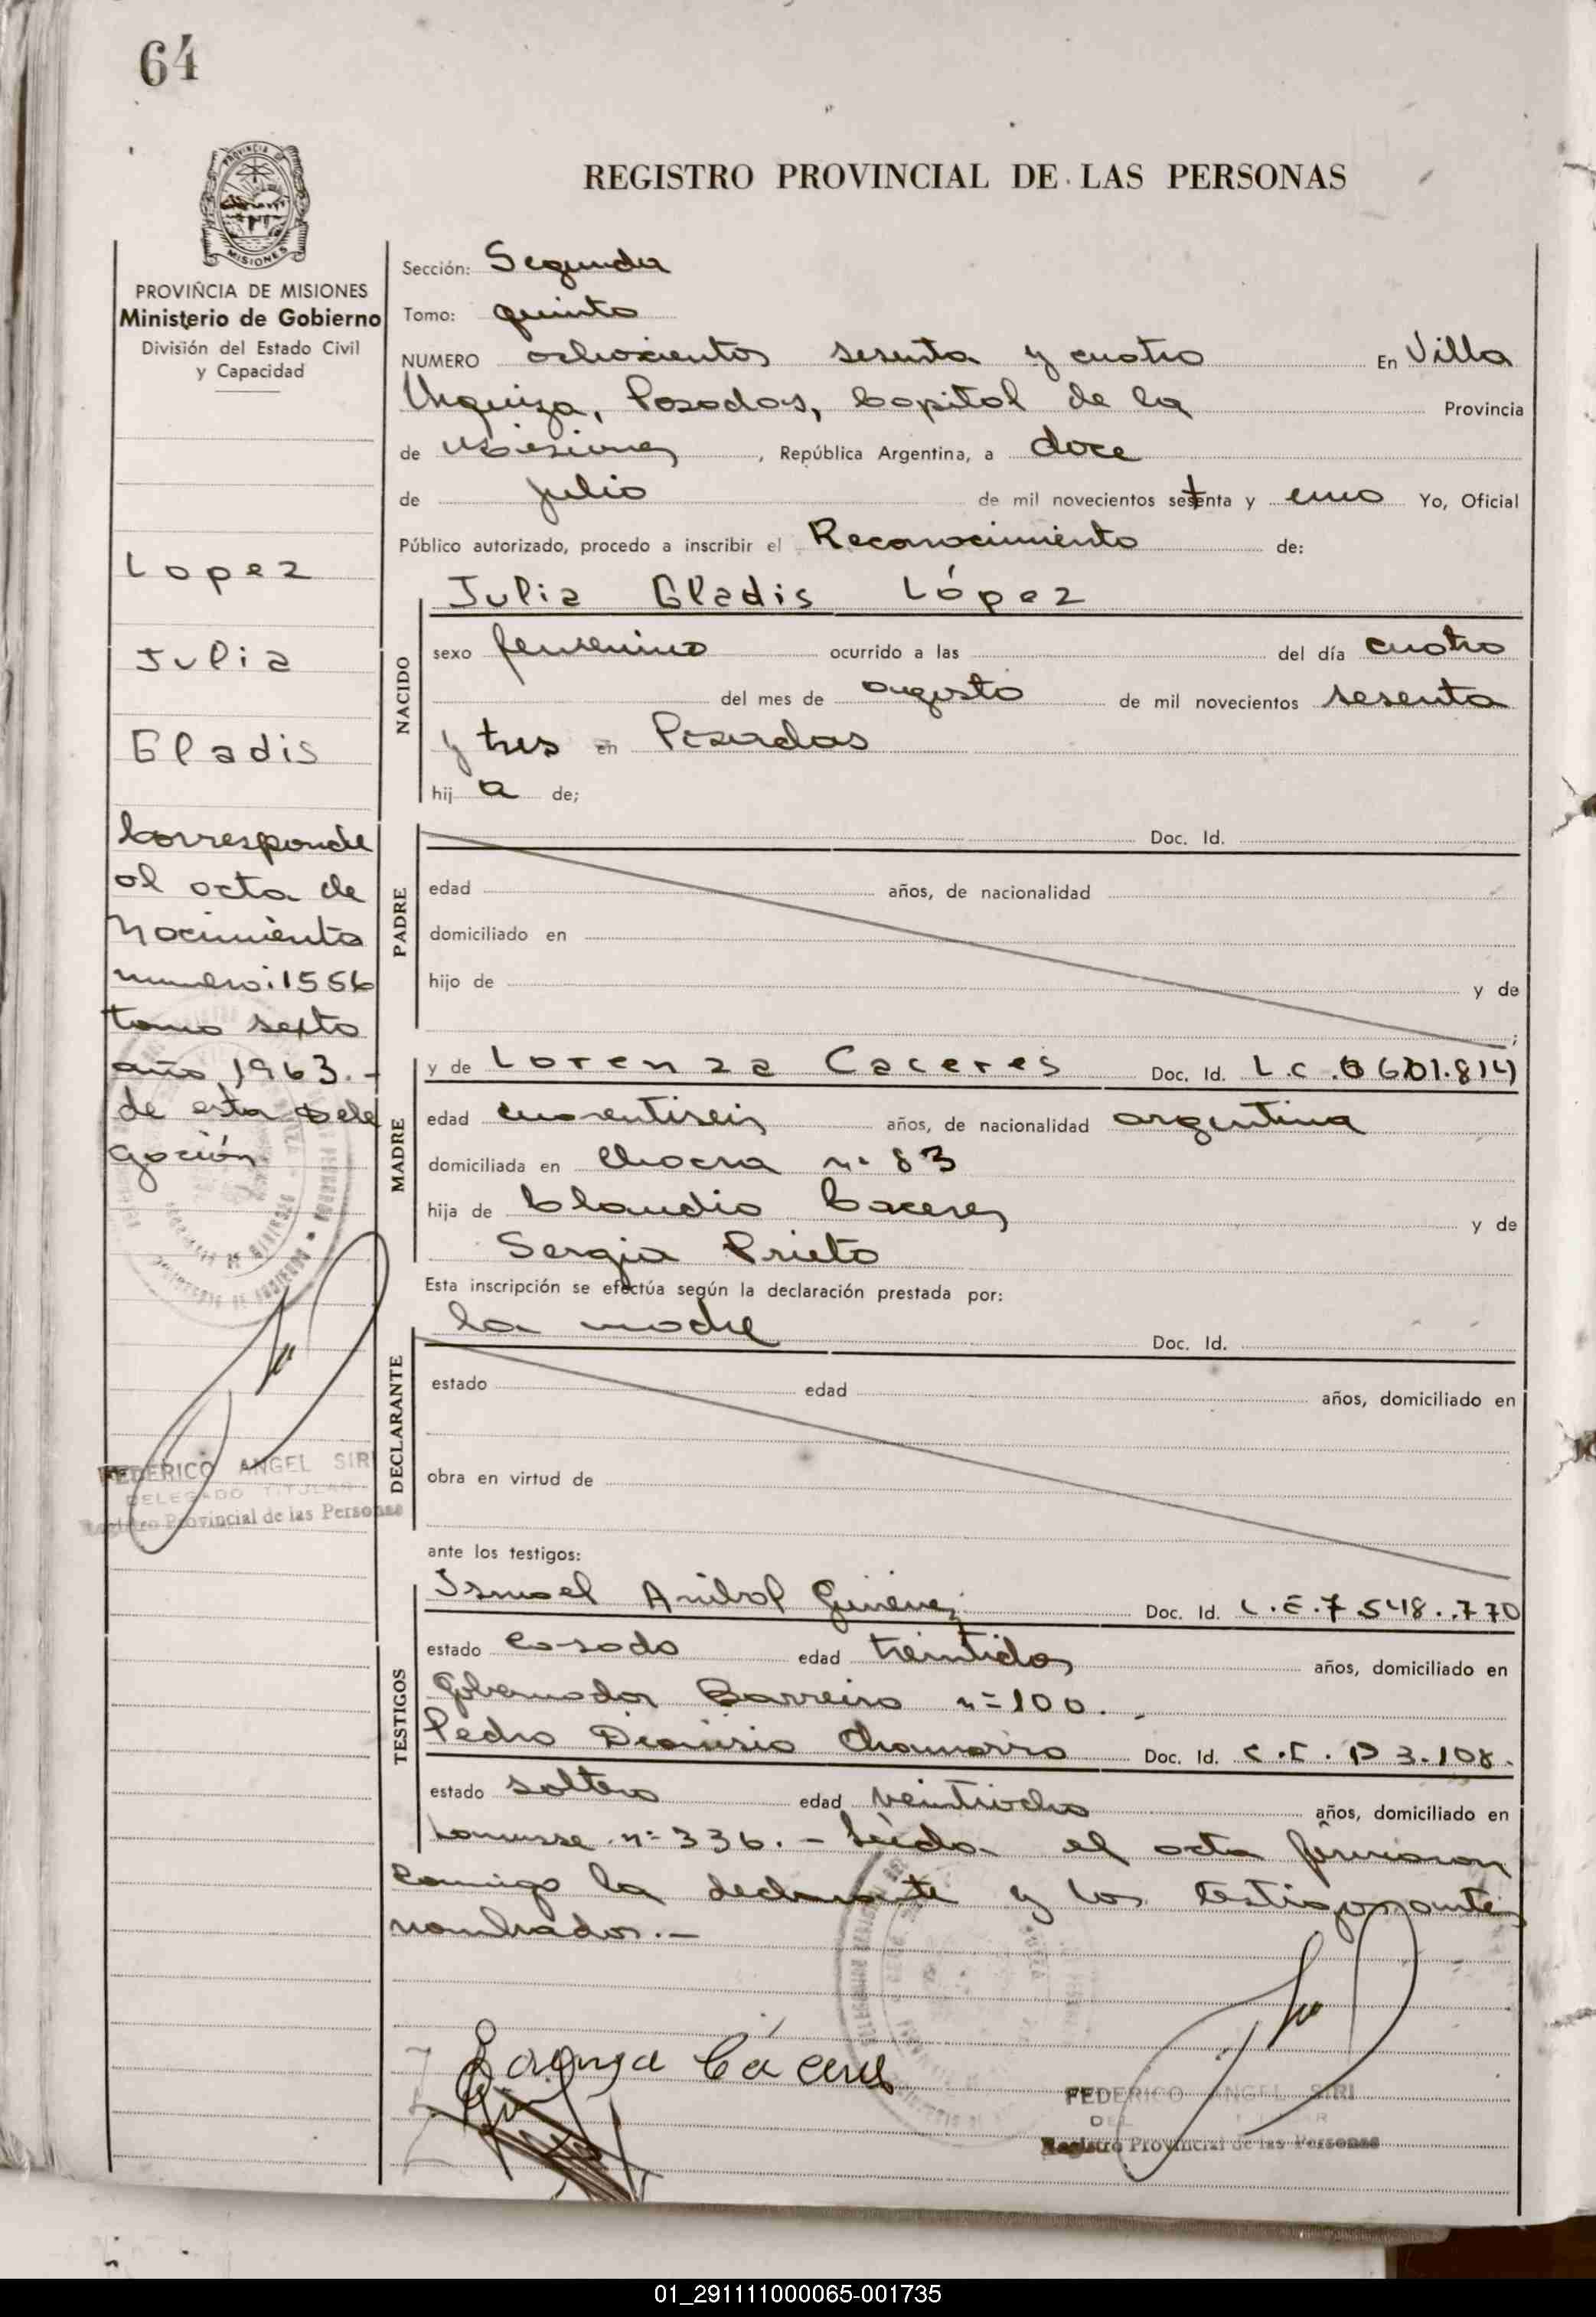 64
PROVINCIA DE MISIONES
REGISTRO PROVINCIAL DE LAS PERSONAS
PROVINCIA DE MISIONES
Ministerio de Gobierno
División del Estado Civil
y Capacidad
Lopez
Julia
Gladis
Corresponde
al acta de
Nacimiento
numero: 1556
tomo sexto
año 1963.-
de esta Dele
gación
FEDERICO ANGEL SIRI
DELEGADO TITULAR
Registro Provincial de las Personas
Sección: Segunda
Tomo: quinto
NUMERO ochocientos sesenta y cuatro En Villa
Urquiza, Posadas, Capital de la Provincia
de Misiones, República Argentina, a doce
de julio de mil novecientos setenta y uno Yo, Oficial
Público autorizado, procedo a inscribir el Reconocimiento de:
NACIDO
Julia Gladis López
sexo femenino ocurrido a las del día cuatro
del mes de agosto de mil novecientos sesenta
y tres en Posadas
hij a de;
PADRE
Doc. Id.
edad años, de nacionalidad
domiciliado en
hijo de y de
;
MADRE
y de Lorenza Caceres Doc. Id. L.C. 6601.814
edad cuarentiseis años, de nacionalidad argentina
domiciliada en Chacra n° 83
hija de Claudio Caceres y de
Sergia Prieto
Esta inscripción se efectúa según la declaración prestada por:
DECLARANTE
la madre Doc. Id.
estado edad años, domiciliado en
obra en virtud de
ante los testigos:
TESTIGOS
Ismael Anibal Gimenez Doc. Id. L.E. 7.548.770
estado casado edad treintidos años, domiciliado en
Gobernador Barreiro n° 100.-
Pedro Dionisio Chamorro Doc. Id. C.I. 3.108.
estado soltero edad veintiocho años, domiciliado en
n° 336.- Leida el acta firmaron
conmigo la declarante y los testigos antes
nombrados.-
Lorenza Cáceres
FEDERICO ANGEL SIRI
Registro Provincial de las Personas
01_291111000065-001735